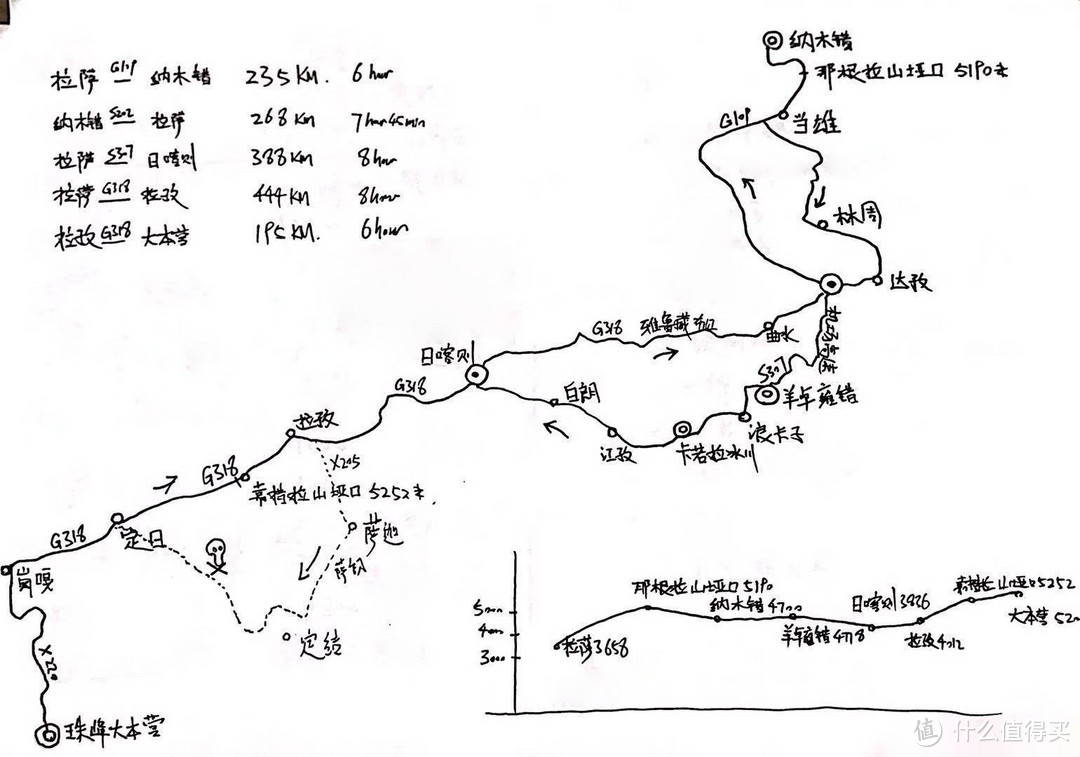 拉萨 G109 纳木错 235KM. 6hour
纳木错 S202 拉萨 268KM 7hour45min
拉萨 S307 日喀则 388KM 8hour
拉萨 G318 拉孜 444KM 8hour
拉孜 G318 大本营 195KM. 6hour
纳木错
那根拉山垭口 5190米
当雄
G109
林周
达孜
机场高速
G318 雅鲁藏布江
曲水
S307
羊卓雍错
浪卡子
卡若拉冰川
江孜
白朗
日喀则
G318
拉孜
X205
G318
嘉措拉山垭口 5252米
萨迦
定日
G318
岗嘎
定结
X220
珠峰大本营
5000
4000
3000
拉萨3658
那根拉山垭口5190
纳木错 4700
羊卓雍错4718
日喀则 3836
拉孜4012
嘉措拉山垭口5252
大本营 520
值 什么值得买